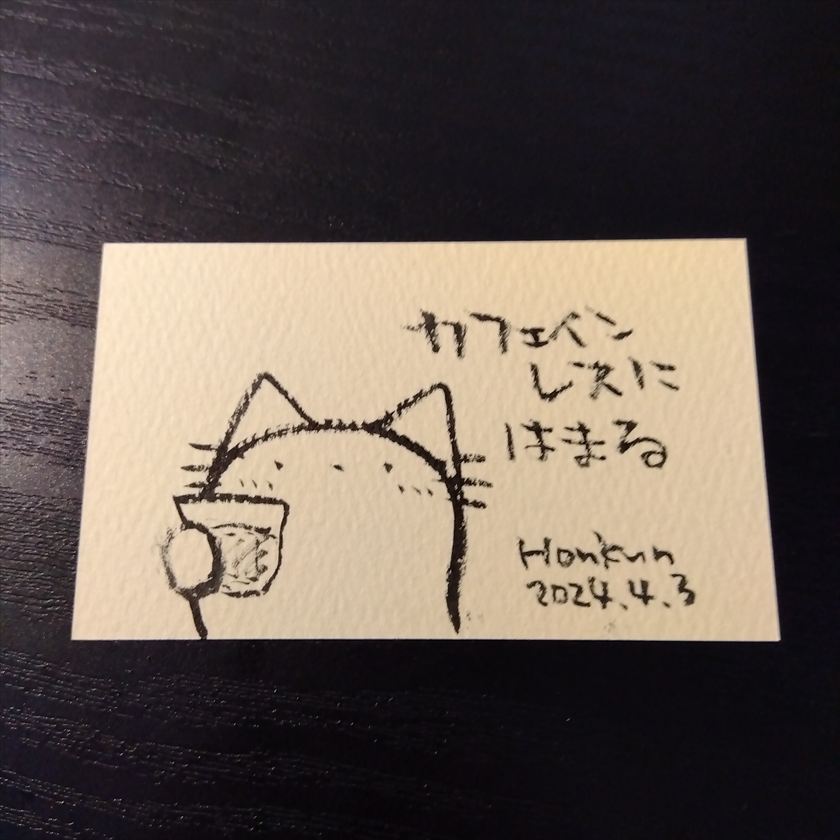 カフェイン
レスに
はまる
Honkun
2024.4.3